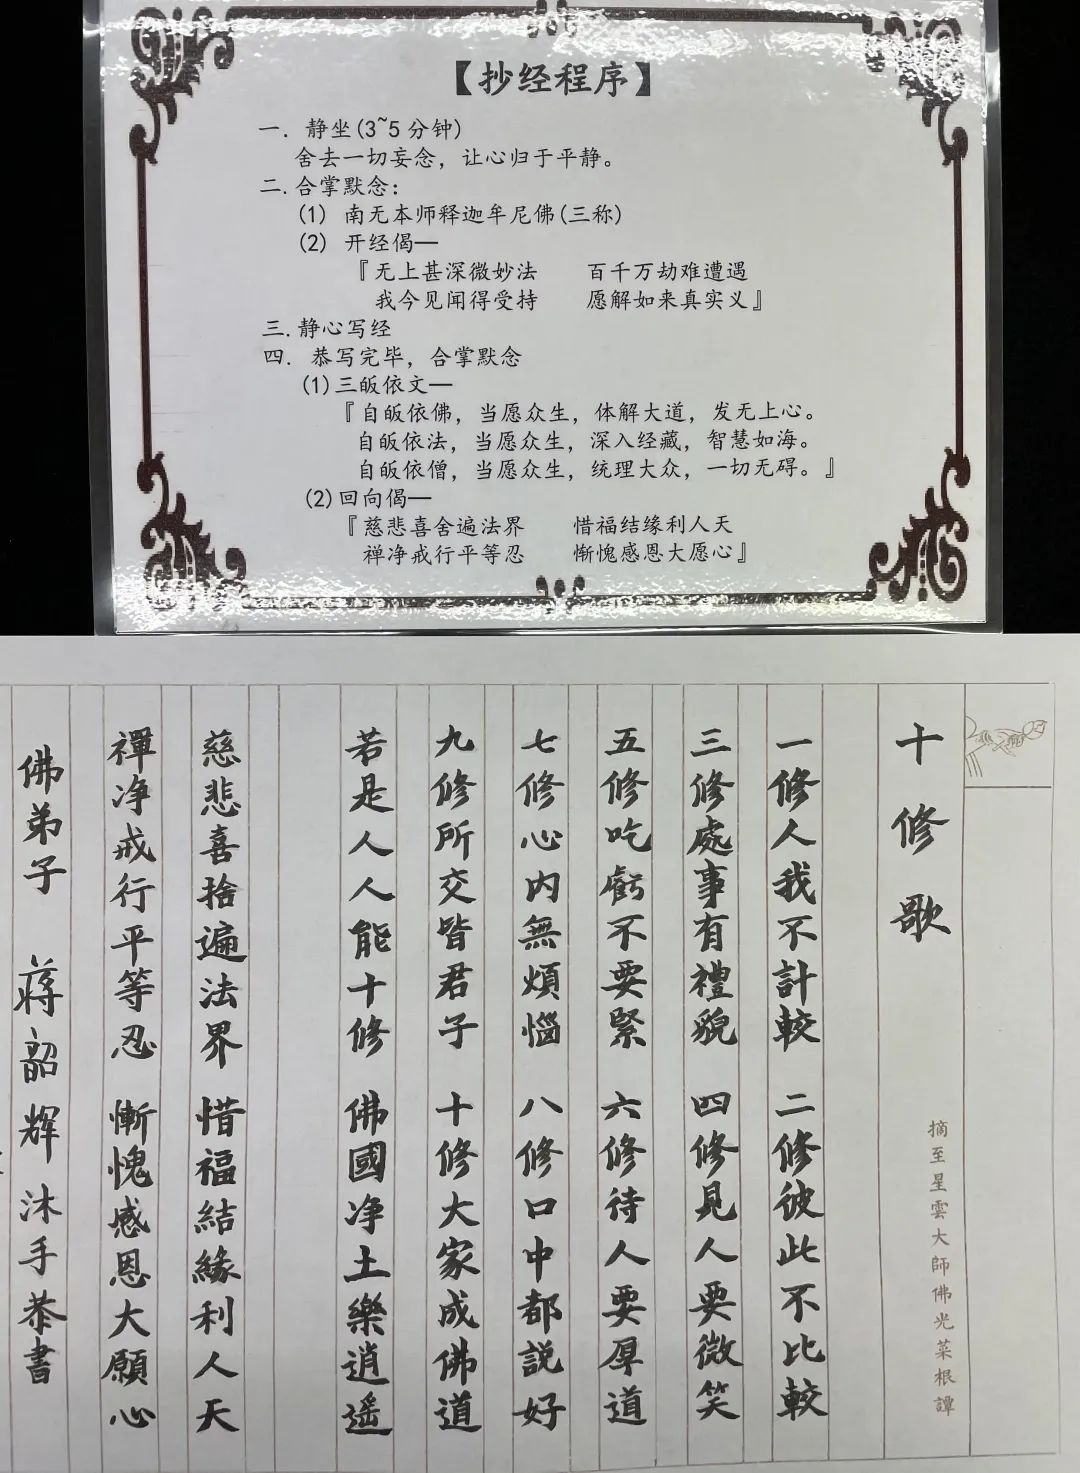 【抄经程序】
一. 静坐(3~5分钟)
舍去一切妄念，让心归于平静。
二.合掌默念：
(1) 南无本师释迦牟尼佛(三称)
(2) 开经偈—
『无上甚深微妙法 百千万劫难遭遇
我今见闻得受持 愿解如来真实义』
三.静心写经
四. 恭写完毕，合掌默念
(1)三皈依文—
『自皈依佛，当愿众生，体解大道，发无上心。
自皈依法，当愿众生，深入经藏，智慧如海。
自皈依僧，当愿众生，统理大众，一切无碍。』
(2)回向偈—
『慈悲喜舍遍法界 惜福结缘利人天
禅净戒行平等忍 惭愧感恩大愿心』
十修歌
摘至星雲大師佛光菜根譚
一修人我不計較 二修彼此不比較
三修處事有禮貌 四修見人要微笑
五修吃虧不要緊 六修待人要厚道
七修心内無煩惱 八修口中都説好
九修所交皆君子 十修大家成佛道
若是人人能十修 佛國净土樂逍遥
慈悲喜捨遍法界 惜福結緣利人天
禪净戒行平等忍 慚愧感恩大願心
佛弟子 蔣韶辉沐手恭書